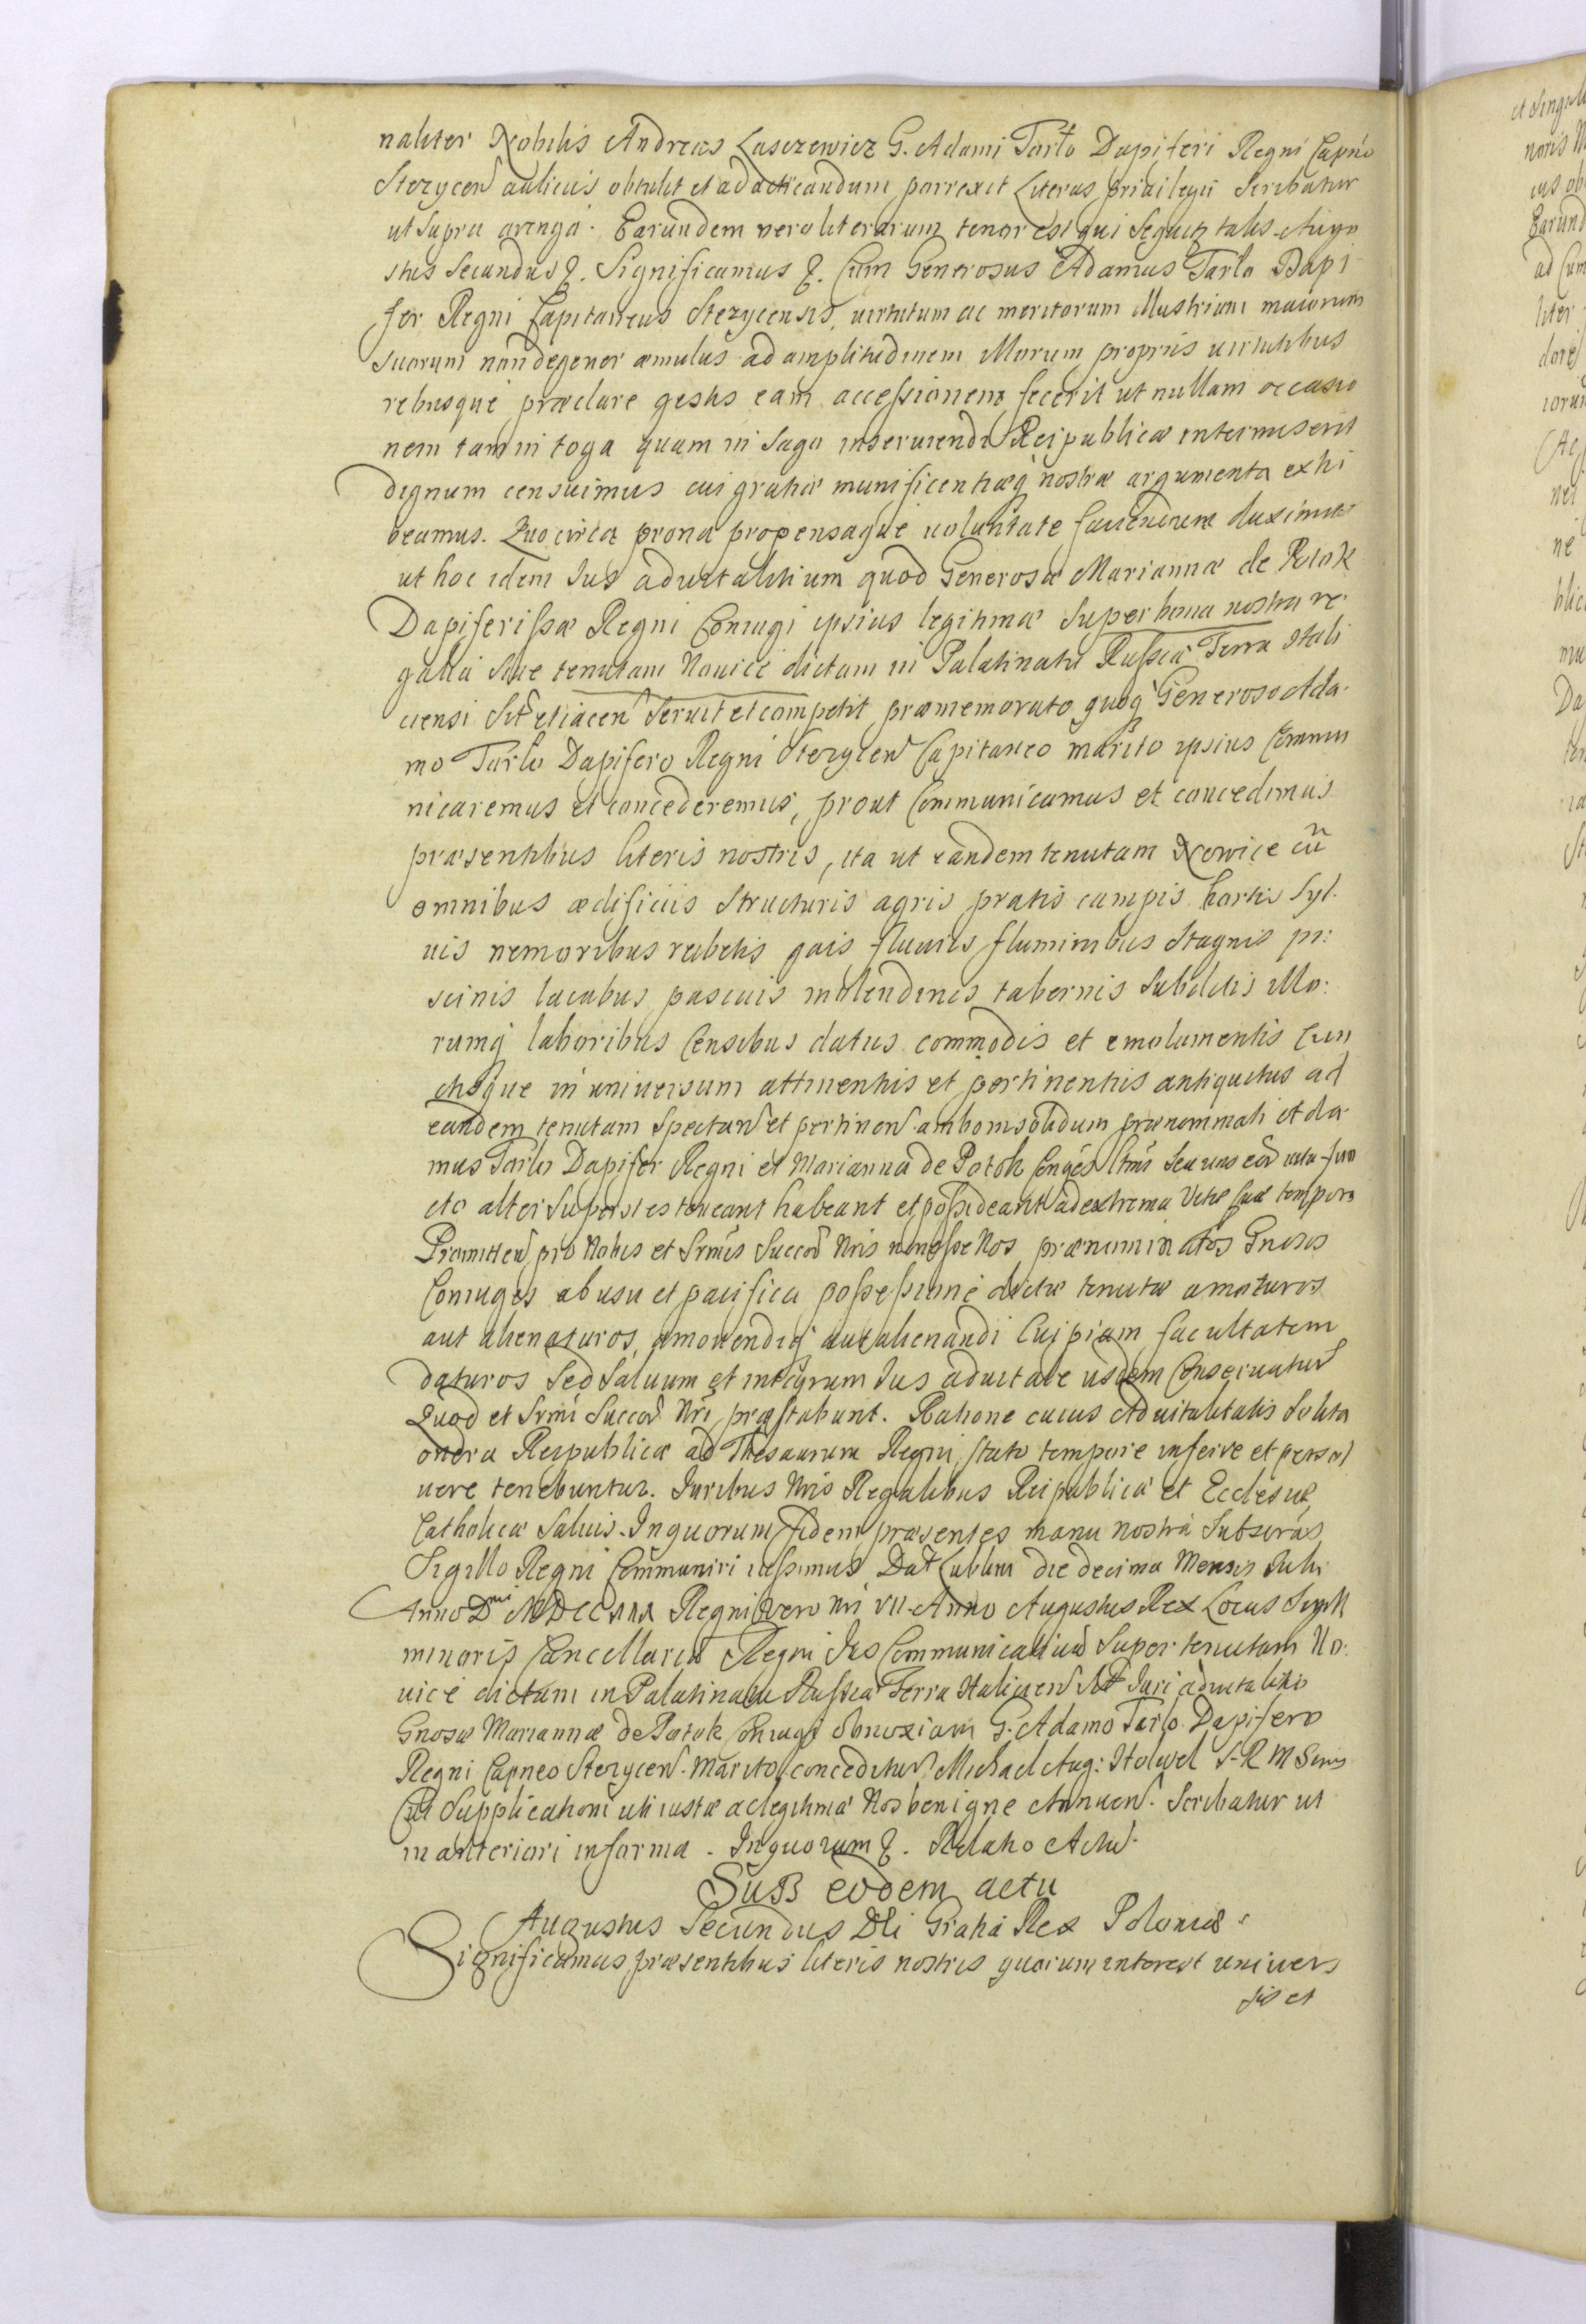 naliter Nobilis Andreas Łaszewicz G. Adami Tarło Dapiferi Regni Capneo
Stezycen aulicus obtulit et ad acticandum porrexit Literas priuilegii Scribatur
ut supra arenga. Earundem vero literarum tenor est qui sequitr talis Augu
stus Secundus &. Significamus &. Cum Generosus Adamus Tarło Dapi
fer Regni Capitaneus Stezycensis, uirtutum ac meritorum illustrium maiorum
suorum non degener æmulus ad amplitudinem illorum propriis uirtutibus
rebusque præclare gestis eam accessionem fecerit ut nullam occasio
nem tam in toga quam in sago inseruiendi Reipublicæ intermiserit
dignum censuimus cui gratiæ munificentiæq nostræ argumenta exhi
beamus. Quocirca prona propensaque uoluntate fauendum duximus
ut hoc idem Jus aduitalitium quod Generosæ Mariannæ de Potok
Dapiferissæ Regni Coniugi ipsius legitimæ super bona nostra re
galia siue tenutam Nowice dictam in Palatinatu Russiæ Terra Hali
ciensi Sit et iacen seruit et competit præmemorato quoq Generoso Ada
mo Tarło Dapifero Regni Stezycen Capitaneo marito ipsius Commu
nicaremus et concederemus, prout Communicamus et concedimus
præsentibus literis nostris, ita ut eandem tenutam Nowice cū
omnibus ædificiis structuris agris pratis campis hortis syl
uis nemoribus rubetis gais fluuiis fluminibus stagnis pi:
scinis lacubus pascuis molendinis tabernis subditis illo:
rumq laboribus Censibus datiis commodis et emolumentis Cun
ctisque in uniuersum attinentiis et pertinentiis antiquitus ad
eandem tenutam spectan et pertinen ambo insolidum prænominati Ada
mus Tarło Dapifer Regni et Marianna de Potok Conges ltmi seu uno eor uita fun
cto alter superstes teneant habeant et possideant ad extrema Vitæ suæ tempora
Promitten pro Nobis et Srmis Succor Nris non esse Nos prænominatos Gnosos
Coniuges ab usu et pacifica possessione dictæ tenutæ amoturos
aut alienaturos, amouendiq aut alienandi Cuipiam facultatem
daturos sed saluum et integrum Jus aduitale iisdem Conseruatur
Quod et Srmi Succor Nri præstabunt. Ratione cuius Aduitalitatis solita
onera Reipublicæ ad Thesaurum Regni stato tempore inferre et persol
uere tenebuntur. Juribus Nris Regalibus Reipublicæ et Ecclesiæ
Catholicæ Saluis. In quorum fidem præsentes manu nostra Subscras
Sigillo Regni Communiri iussimus Dat Lublini die decima Mensis Julii
Anno Dni MDCCIII Regni vero Nri VII Anno Augustus Rex Locus Sigilli
minoris Cancellariæ Regni Jus Communicatiuū super tenutam No:
uice dictam in Palatinatu Russiæ Terra Halicien Sit Juri aduitalitio
Gnosæ Mariannæ de Potok Coniugi obnoxiam G. Adamo Tarło Dapifero
Regni Capneo Stezycen. Marito conceditur Michael Aug: S. R. M
Cui Supplicationi uti iustæ ac legitimæ Nos benigne Annuen. Scribatur ut
in anteriori in forma. In quorum &. Relatio Actu.
Sub eodem actu
Augustus Secundus Dei Gratia Rex Poloniæ
Significamus præsentibus literis nostris quorum interest univer
sis et